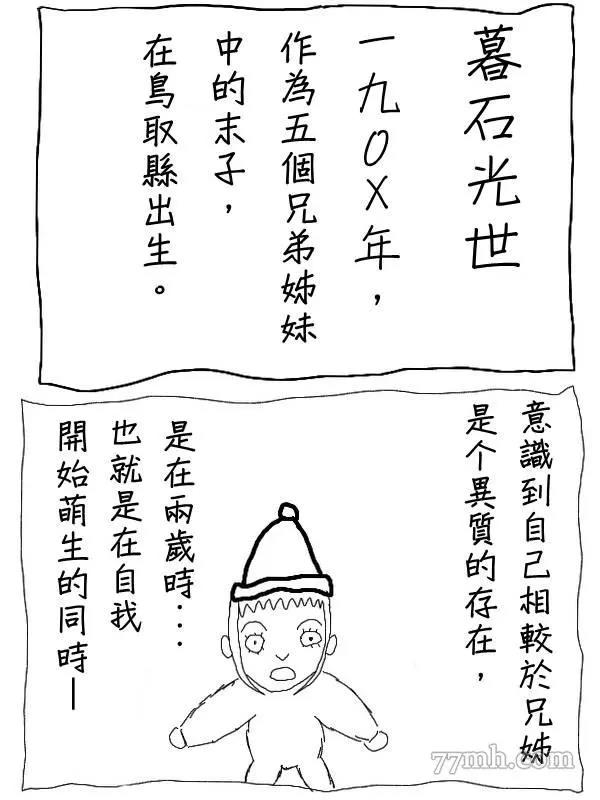 暮石光世
一九〇X年，
作為五個兄弟姊妹
中的末子，
在鳥取縣出生。
意識到自己相較於兄姊
是个異質的存在，
是在兩歲時…
也就是在自我
開始萌生的同時—
77mh.com